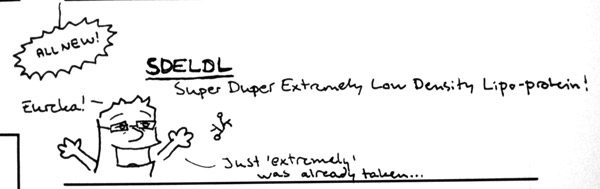 ALL NEW!
SDELDL
Super Duper Extremely Low Density Lipo-protein!
Eureka!
Just 'extremely'
was already taken...